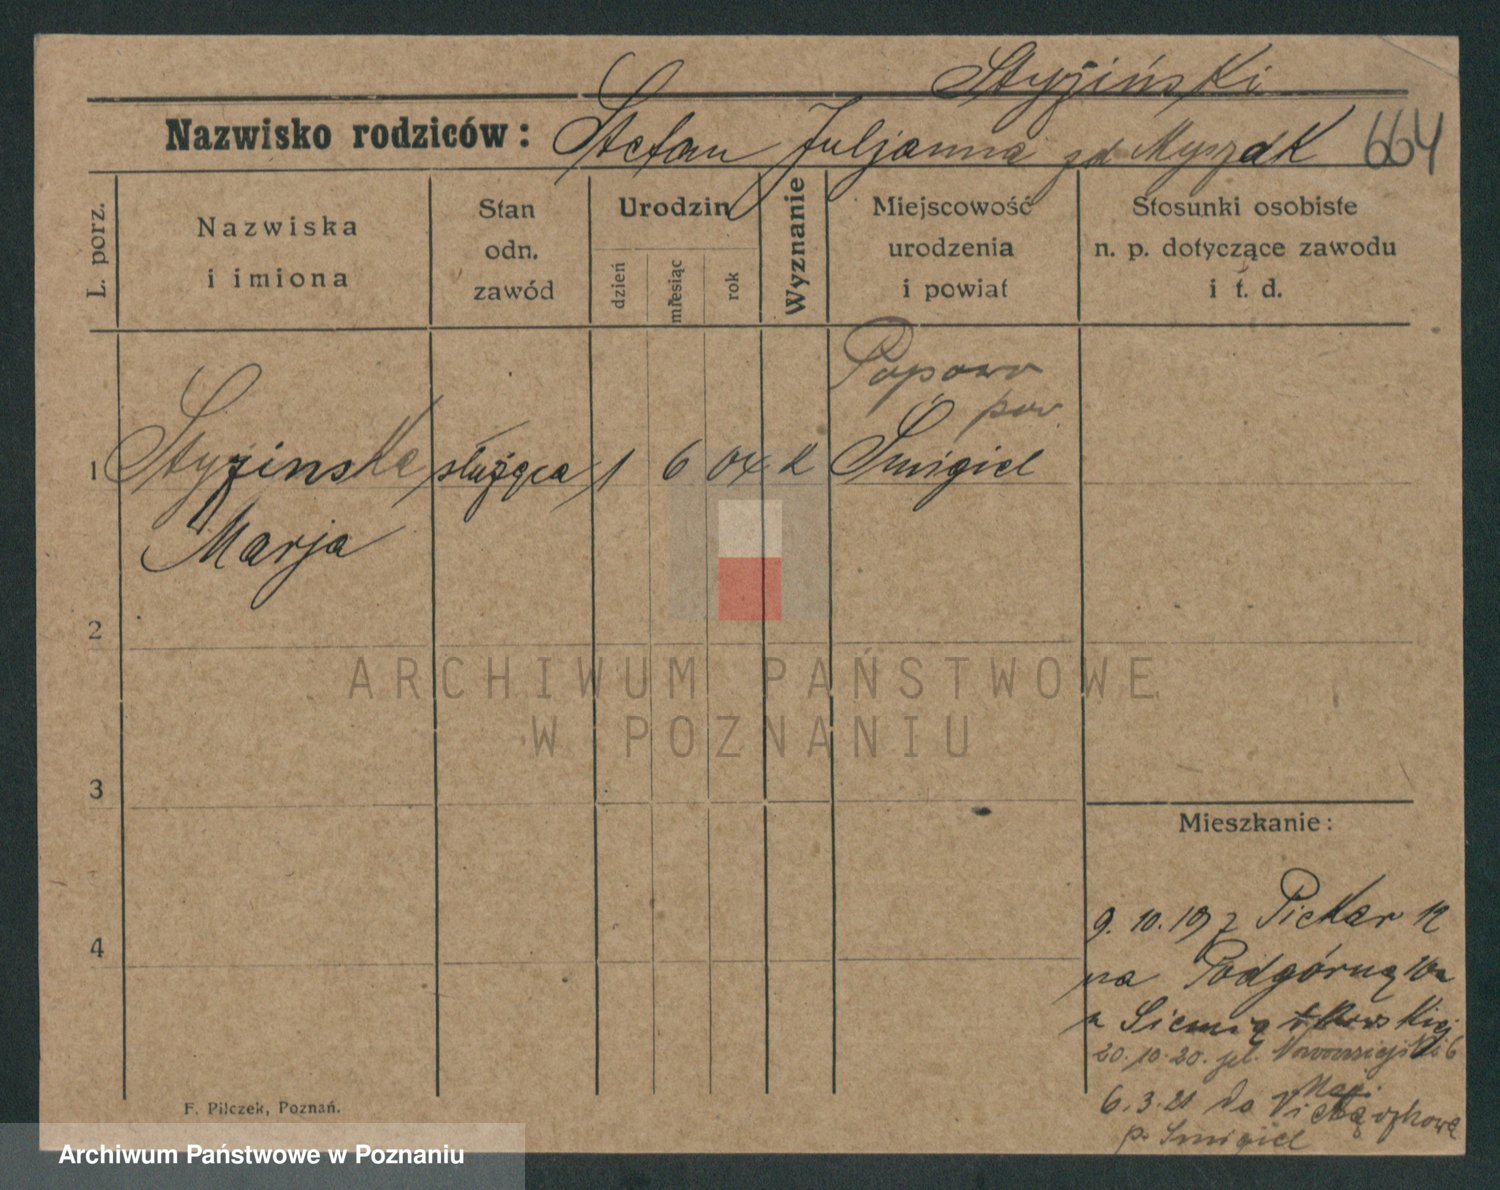 Styziński
Nazwisko rodziców: Stefan Juljanna zd Myszak 664
L. porz.
Nazwiska
i imiona
Stan
odn.
zawód
Urodzin
dzień
miesiąc
rok
Wyznanie
Miejscowość
urodzenia
i powiat
Stosunki osobiste
n. p. dotyczące zawodu
i t. d.
Popowo
pow.
1 Styzinska służąca 1 6 04 k Śmigiel
Marja
2
ARCHIWUM PAŃSTWOWE
W POZNANIU
3
Mieszkanie:
4
9. 10. 19 z Piekar 12
na Podgórną 10a
u Siemiątkowskiej
20. 10. 20. pl. Nowomiejski 6
6. 3. 21 do
p. Śmigiel
F. Pilczek, Poznań.
Archiwum Państwowe w Poznaniu